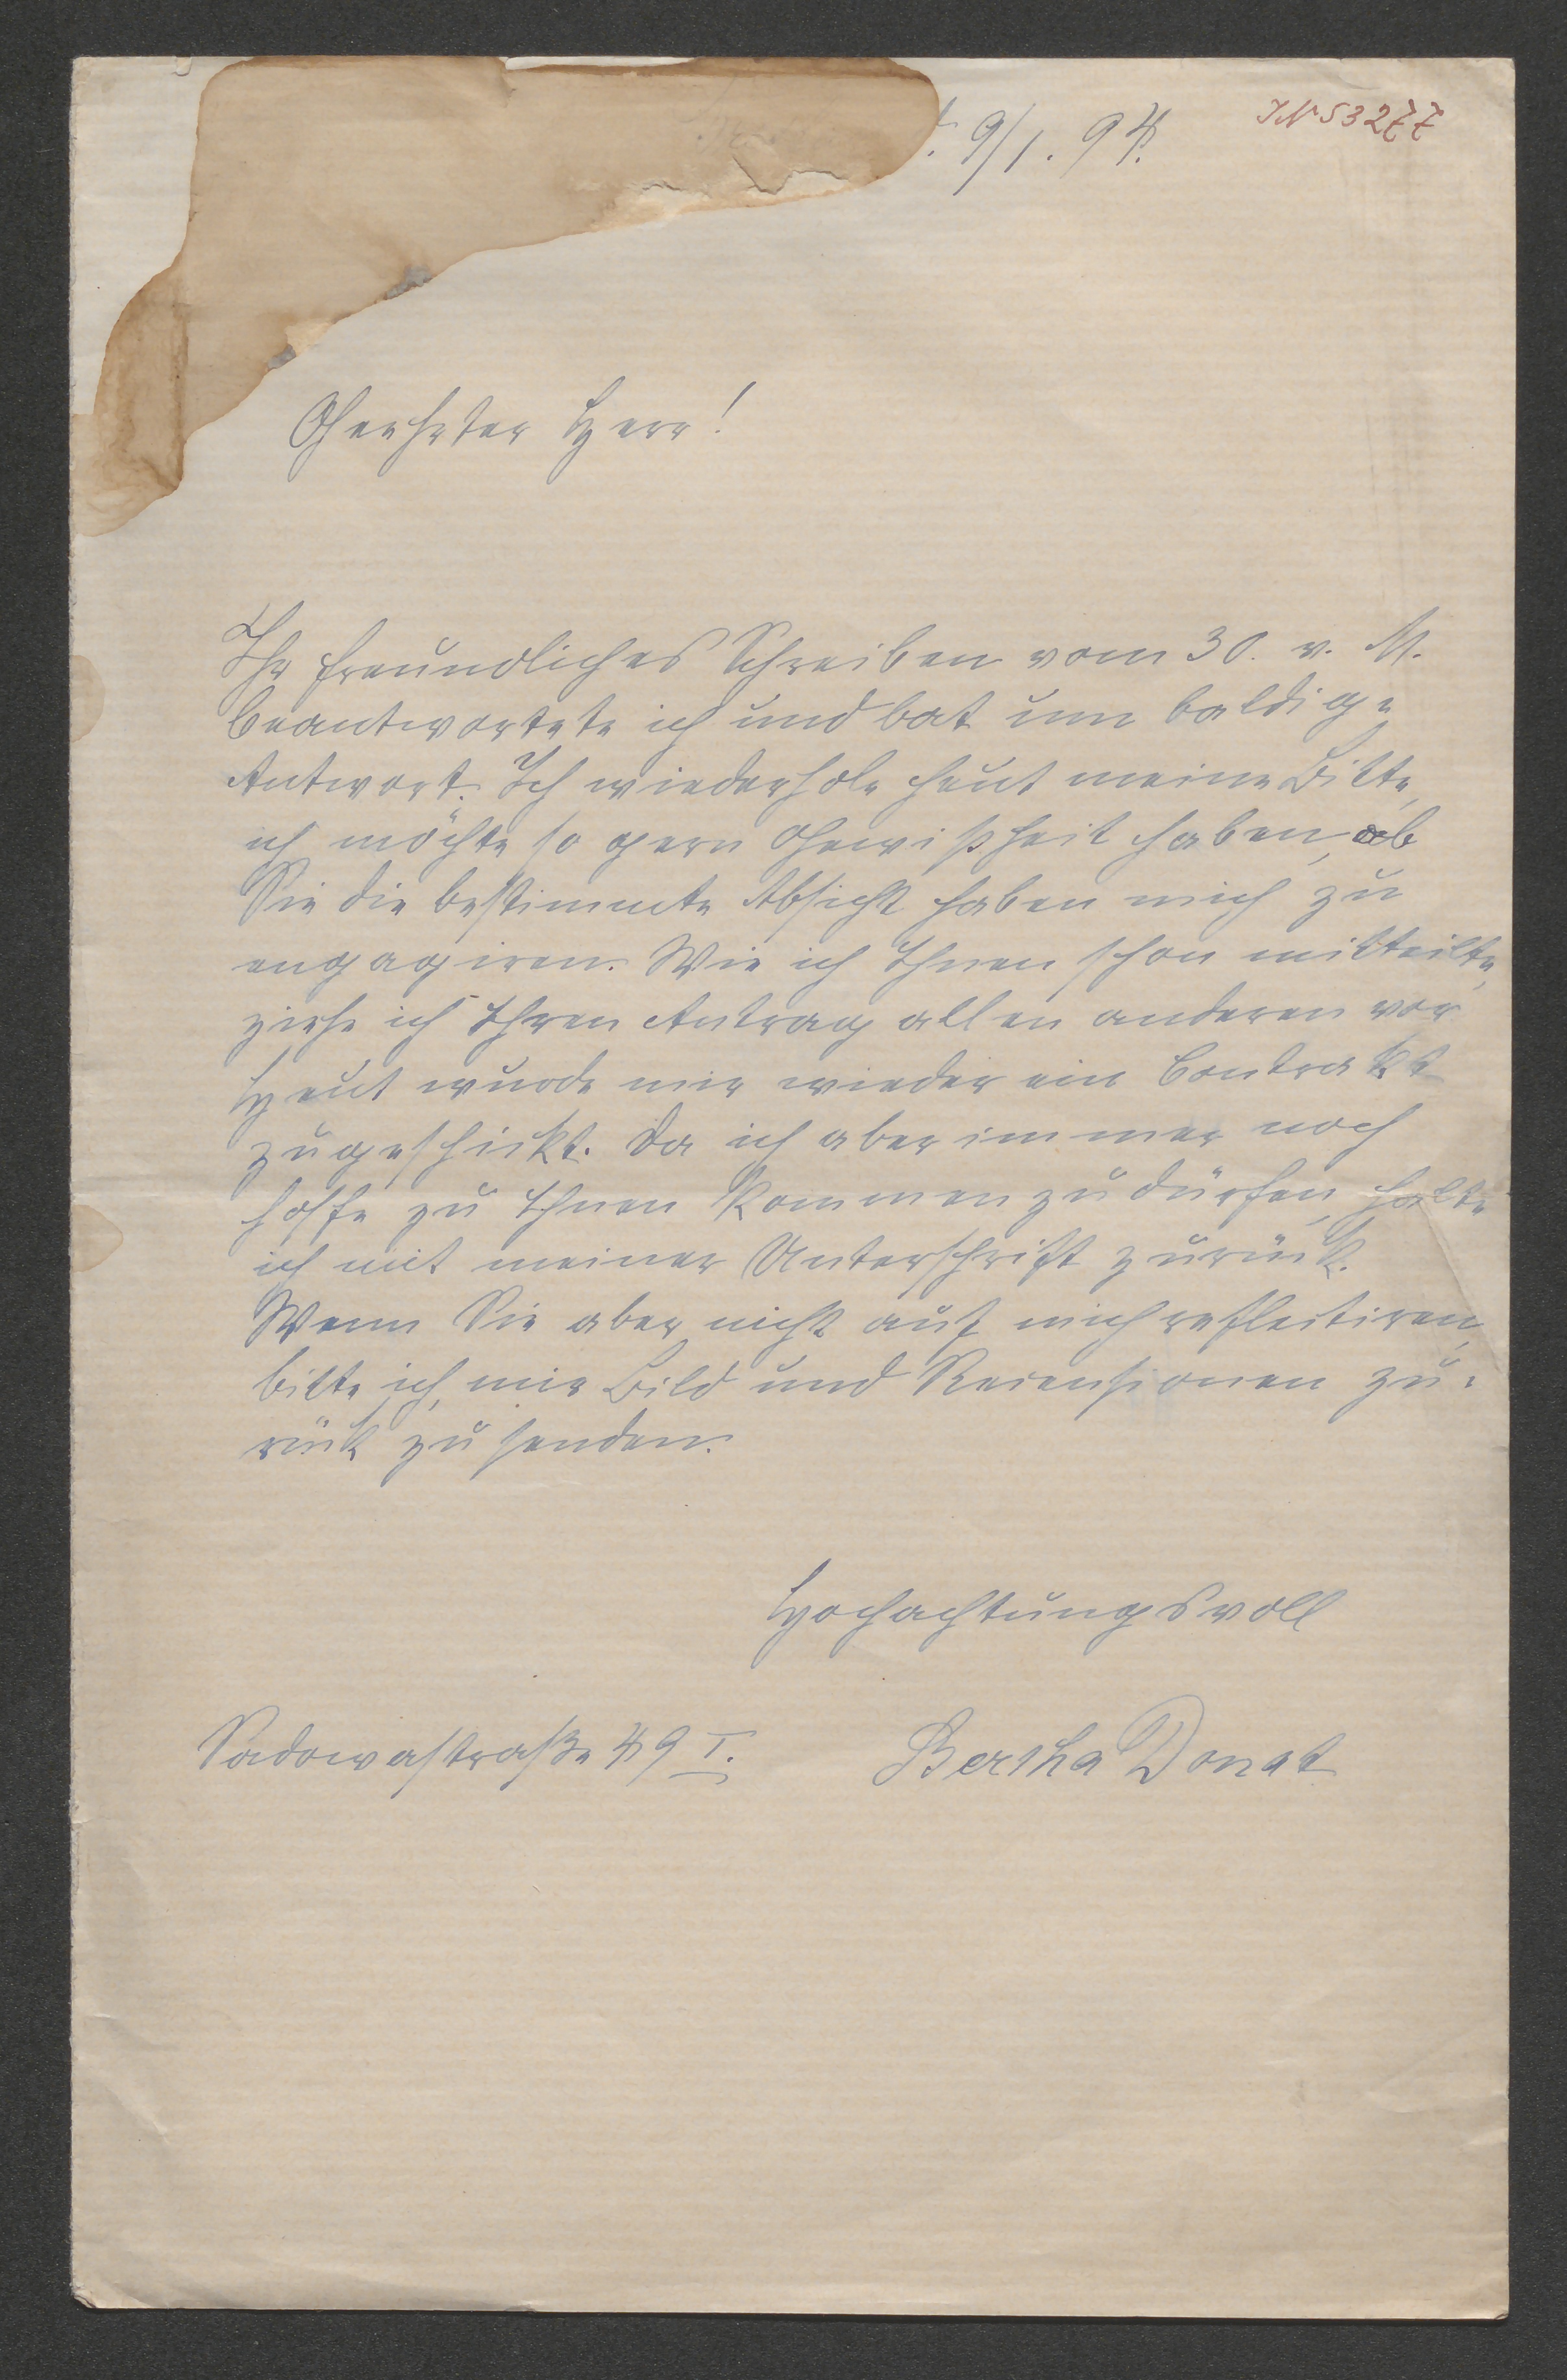 9/1. 94.
IN 53277
Geehrter Herr!
Ihr freundliches Schreiben vom 30. v. M.
beantwortete ich und bat um baldige
Antwort. Ich wiederhole heut meine Bitte,
ich möchte so gern Gewißheit haben, ob
Sie die bestimmte Absicht haben mich zu
engagiren. Wie ich Ihnen schon mitteilte,
ziehe ich Ihren Antrag allen anderen vor
Heut wurde mir wieder ein Contrakt
zugeschickt. Da ich aber immer noch
hoffe zu Ihnen kommen zu dürfen, halte
ich mit meiner Unterschrift zurück.
Wenn Sie aber nicht auf mich reflectiren,
bitte ich, mir Bild und Recensionen zu-
rück zu senden.
Hochachtungsvoll
Sadowastraße 49 I. Bertha Donat